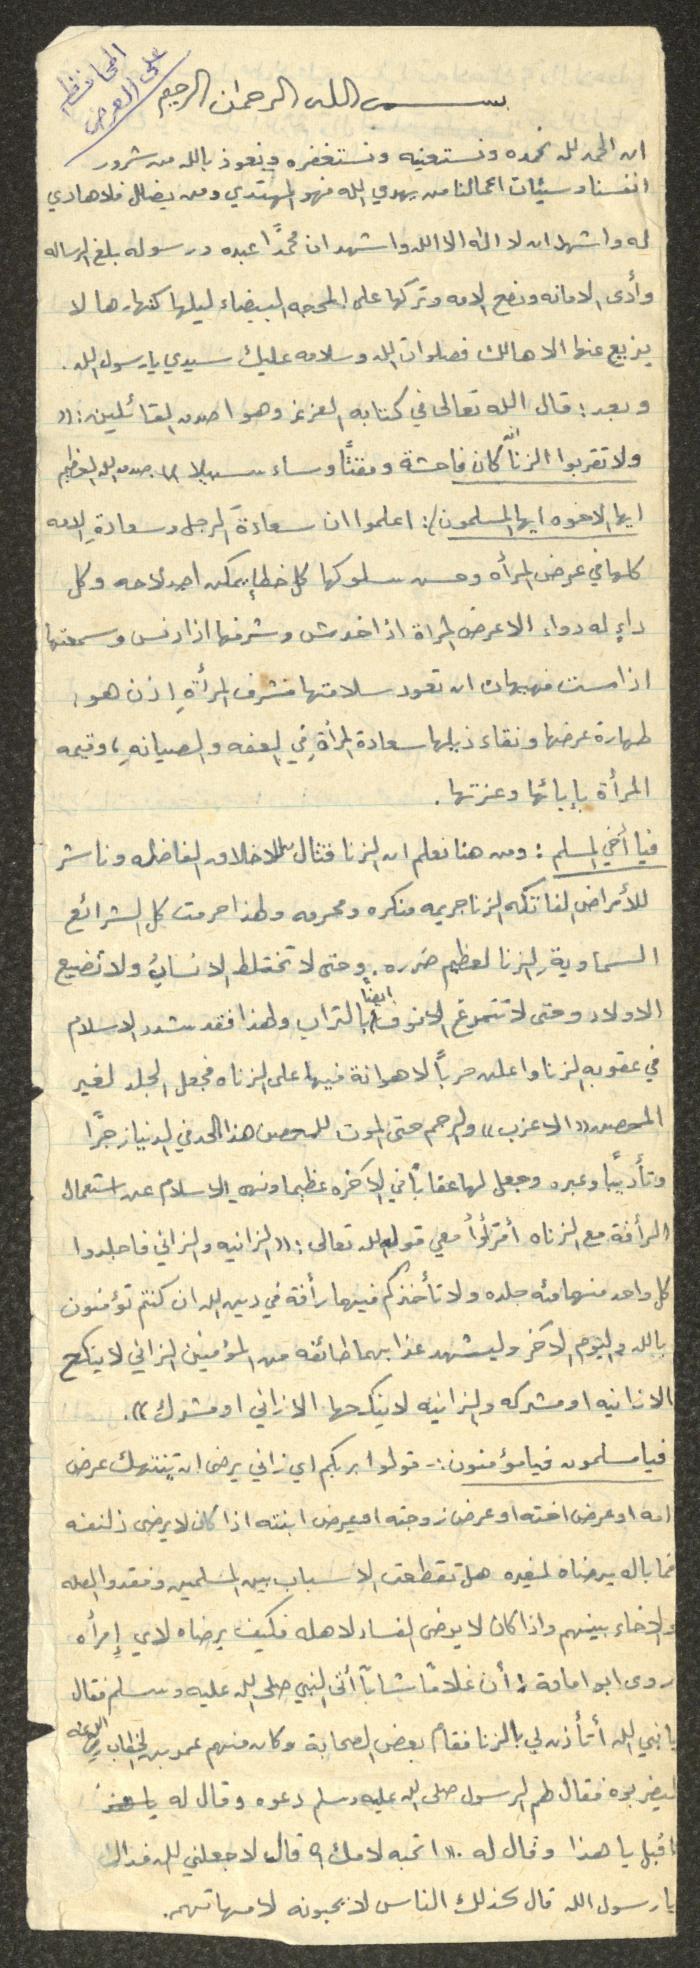 المحافظة
على العرض
بسم الله الرحمان الرحيم
ان الحمد لله نحمده ونستعينه ونستغفره ونعوذ بالله من شرور
انفسنا وسيئات اعمالنا من يهدي الله فهو المهتدي ومن يضلل فلا هادي
له واشهد ان لا اله الا الله واشهد ان محمدًا عبده ورسوله بلغ الرساله
وأدى الامانه ونصح الامه وتركها على المحجه البيضاء ليلها كنهارها لا
يزيع عنها الا هالك فصلوات الله وسلامه عليك سيدي يا رسول الله .
وبعد : قال الله تعالى في كتابه العزيز وهو اصدق القائلين : ((
ولا تقربوا الزنا انه كان فاحشة ومقتًا وساء سبيلا )) . صدق الله العظيم
ايها الاخوه ايها المسلمون : اعلموا ان سعادةَ الرجل وسعادةِ الامه
كلها في عرض المرأه وحسن سلوكها كل خطإ يمكن اصلاحه وكل
داءٍ له دواء الا عرض المراة اذا خدش وشرفها اذا دنس وسمعتها
اذا مست فهيهات ان تعود سلامتها فشرف المرأةِ اذن هو :
طهارة عرضها ونقاء ذيلها سعادة المرأةِ في العفه والصيانهِ ، وقيمه
المرأة بإبائها وعزتها .
فيا أخي المسلم : ومن هنا نعلم ان الزنا قتال للاخلاق الفاضله وناشر
للأمراض الفتاكه الزنا جريمه منكره ومحرمه ولهذا حرمت كل الشرائع
السماوية الزنا لعظيم ضرره . وحتى لا تختلط الانسابُ ولا تضيع
الاولاد وحتى لا تتمرغ الانوف ايضًا بالتراب ولهذا فقد شدد الاسلام
في عقوبه الزنا واعلن حربًا لا هوانة فيها على الزناه فجعل الجلد لغير
المحصن (( الاعزب )) والرجم حتى الموت للمحصن هذا الحد في الدنيا زجرًا
وتأديبًا وعبره وجعل لها عقابًا في الآخره عظيما ونهى الاسلام عن استعمال
الرأفة مع الزناه أقرأوا معي قول الله تعالى : (( الزانيه والزاني فاجلدوا
كل واحد منهما مئه جلده ولا تأخذكم فيهما رأفة في دين الله ان كنتم تؤمنون
بالله واليوم الآخر وليشهد عذابهما طائفه من المؤمنين الزاني لا ينكح
الا زانيه او مشركه والزانيه لا ينكحها الا زاني او مشرك )) .
فيا مسلمون فيا مؤمنون :- قولوا بربكم اي زاني يرضى ان يُنتهك عرض
امه او عرض اخته او عرض زوجته او عرض ابنته اذا كان لا يرضى ذلنفه
فما باله يرضاه لغيره هل تقطعت الاسباب بين المسلمين وفقدوا الصله
والاخاء بينهم واذا كان لا يرضى الفساد لاهله فكيف يرضاه لاي إمرأه
روى ابو امامة : أن غلامًا شابًا أتى النبي صلى الله عليه وسلم فقال
يا نبي الله أتأذن لي بالزنا فقام بعض الصحابة وكان منهم عمر بن الخطاب رضي الله عنه
ليضربوه فقال لهم الرسول صلى الله عليه وسلم دعوه وقال له يا
اقبل يا هذا وقال له .(( اتحبه لامك ؟ قال لا جعلني الله فداك
يا رسول الله قال كذلك الناس لا يحبونه لامهاتهم .